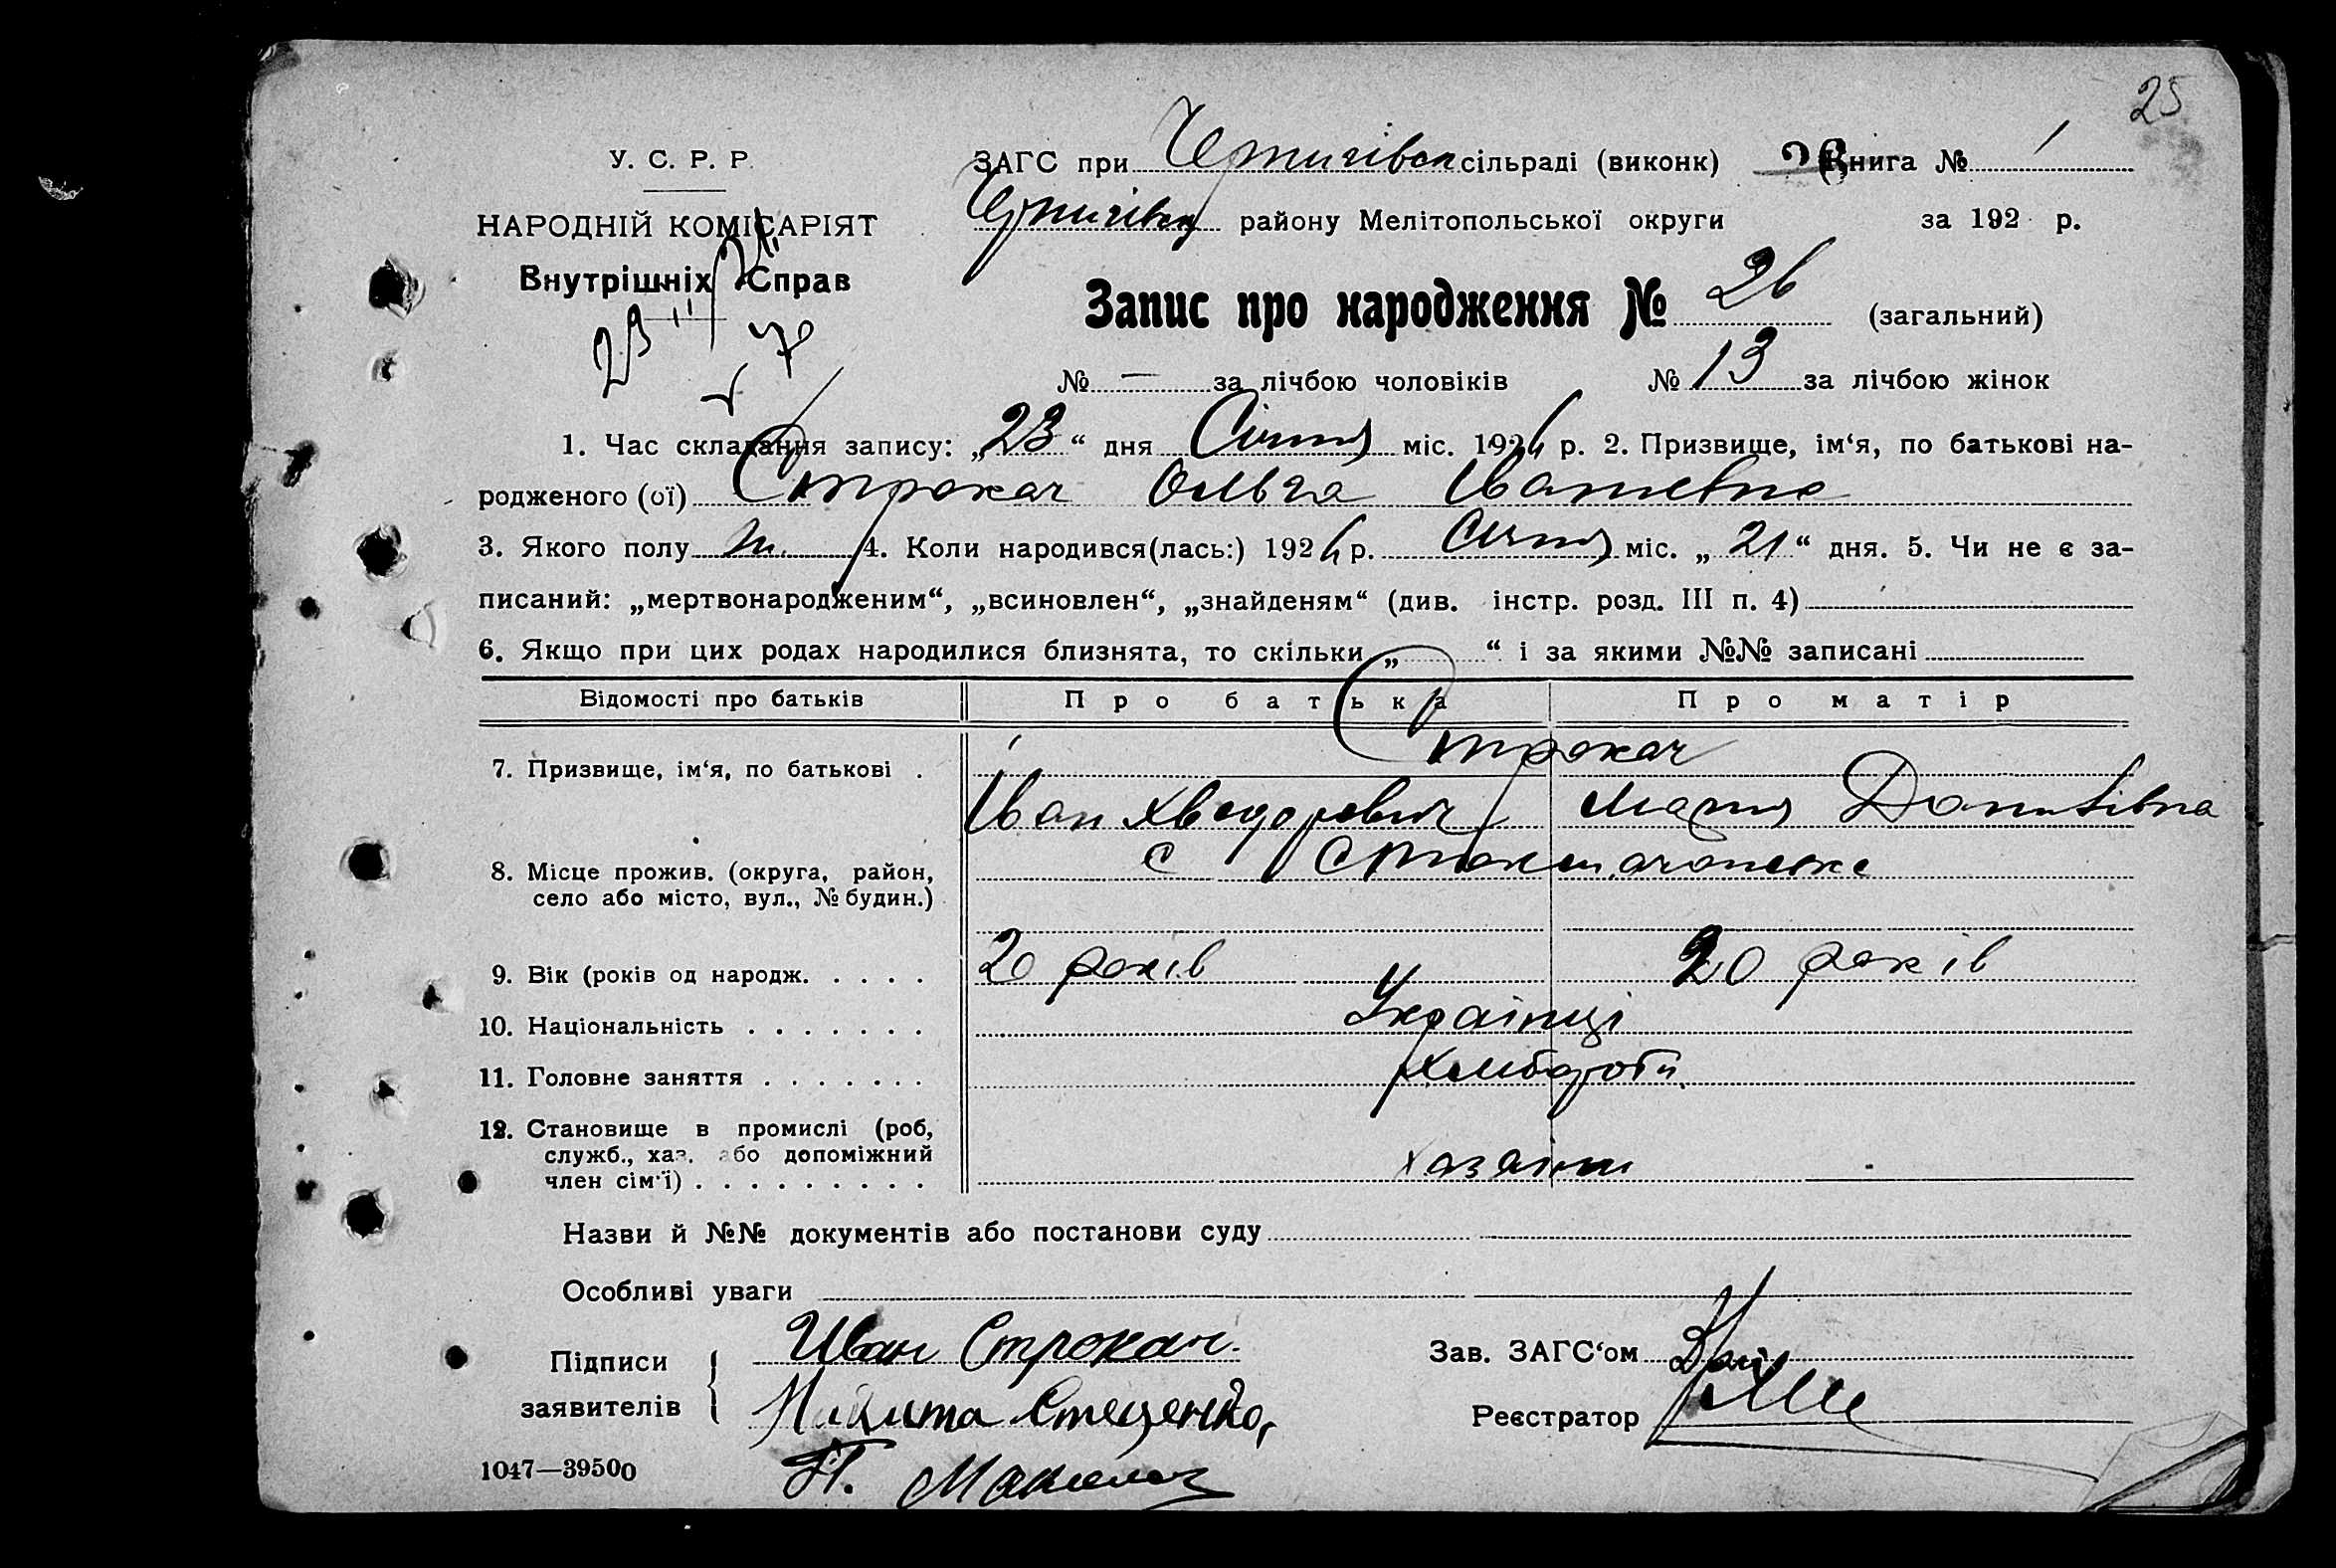 25
У. С. Р. Р.
НАРОДНІЙ КОМІСАРІЯТ
Внутрішніх Справ
ЗАГС при сільраді (виконк) Книга № 1
району Мелітопольської округи за 192 р.
Запис про народження № 26 (загальний)
№ — за лічбою чоловіків № 13 за лічбою жінок
1. Час складання запису: „23“ дня Січня міс. 192 р. 2. Призвище, ім‘я, по батькові на-
родженого (ої) Строкач Ольга Іванівна
3. Якого полу 4. Коли народився(лась:) 192 р. Січня міс. „21“ дня. 5. Чи не є за-
писаний: „мертвонародженим“, „всиновлен“, „знайденям“ (див. інстр. розд. III п. 4)
6. Якщо при цих родах народилися близнята, то скільки „ “ і за якими №№ записані
Відомості про батьків Про батька Про матір
Строкач
7. Призвище, ім‘я, по батькові .
Іван Хведорович Марія
8. Місце прожив. (округа, район,
село або місто, вул., № будин.)
с
9. Вік (років од народж. . . . . 20 років 20 років
10. Національність . . . . . . . Українці
11. Головне заняття . . . . . . . хлібороби
12. Становище в промислі (роб,
служб., хаз. або допоміжний
член сім‘ї) . . . . . . . . . хазяіни
Назви й №№ документів або постанови суду
Особливі уваги
Підписи
заявителів
Иван Строкач.
Никита Стеценко,
Зав. ЗАГС‘ом
Реєстратор
1047—39500